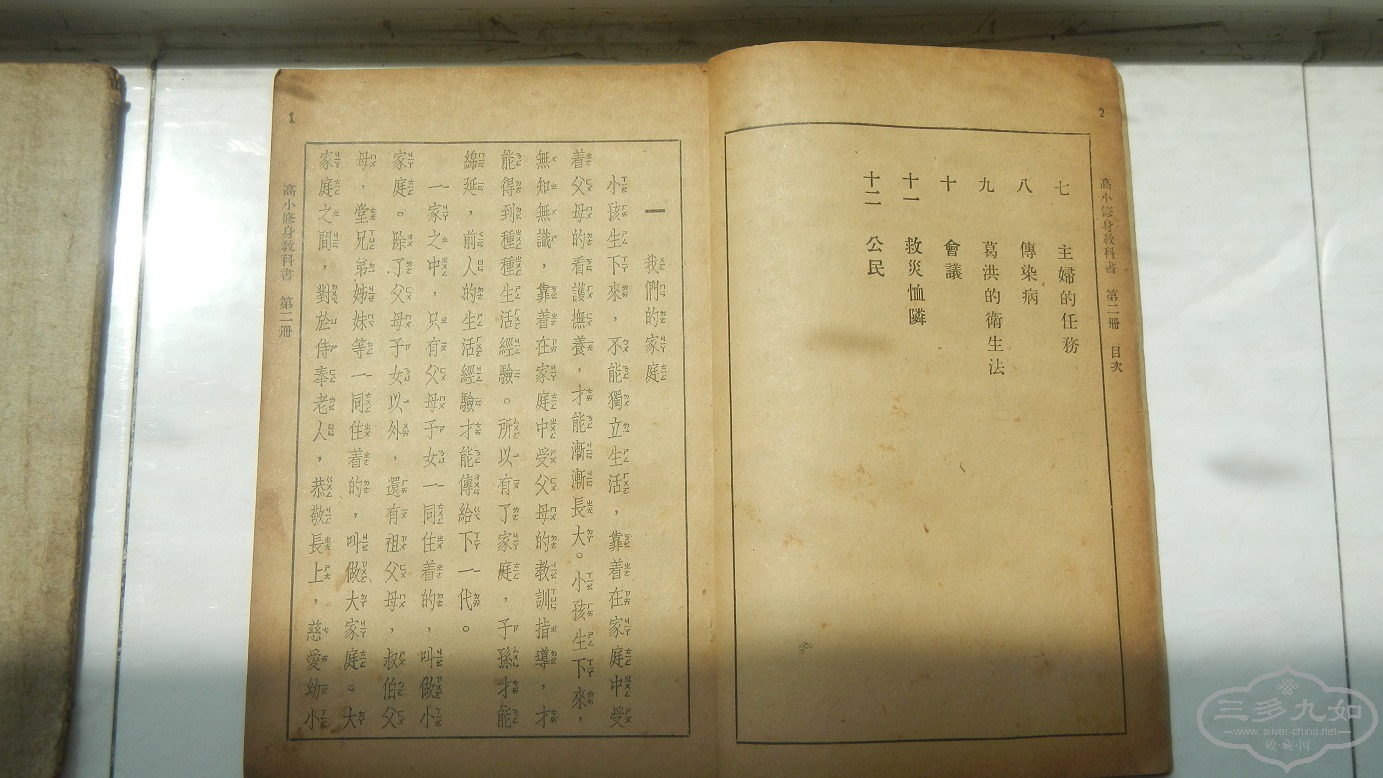 2
高小修身教科書 第二冊 目次
七 主婦的任務
八 傳染病
九 葛洪的衛生法
十 會議
十一 救災恤隣
十二 公民
一 我們的家庭
小孩生下來，不能獨立生活，靠着在家庭中受
着父母的看護撫養，才能漸漸長大。小孩生下來，
無知無識，靠着在家庭中受父母的教訓指導，才
能得到種種生活經驗。所以有了家庭，子孫才能
綿延，前人的生活經驗才能傳給下一代。
一家之中，只有父母子女一同住着的，叫做小
家庭。除了父母子女以外，還有祖父母，叔伯父
母，堂兄弟姊妹等一同住着的，叫做大家庭。大
家庭之間，對於侍奉老人，恭敬長上，慈愛幼小
高小修身教科書 第二冊
1
三多九如
www.silver-china.net
收·藏·网